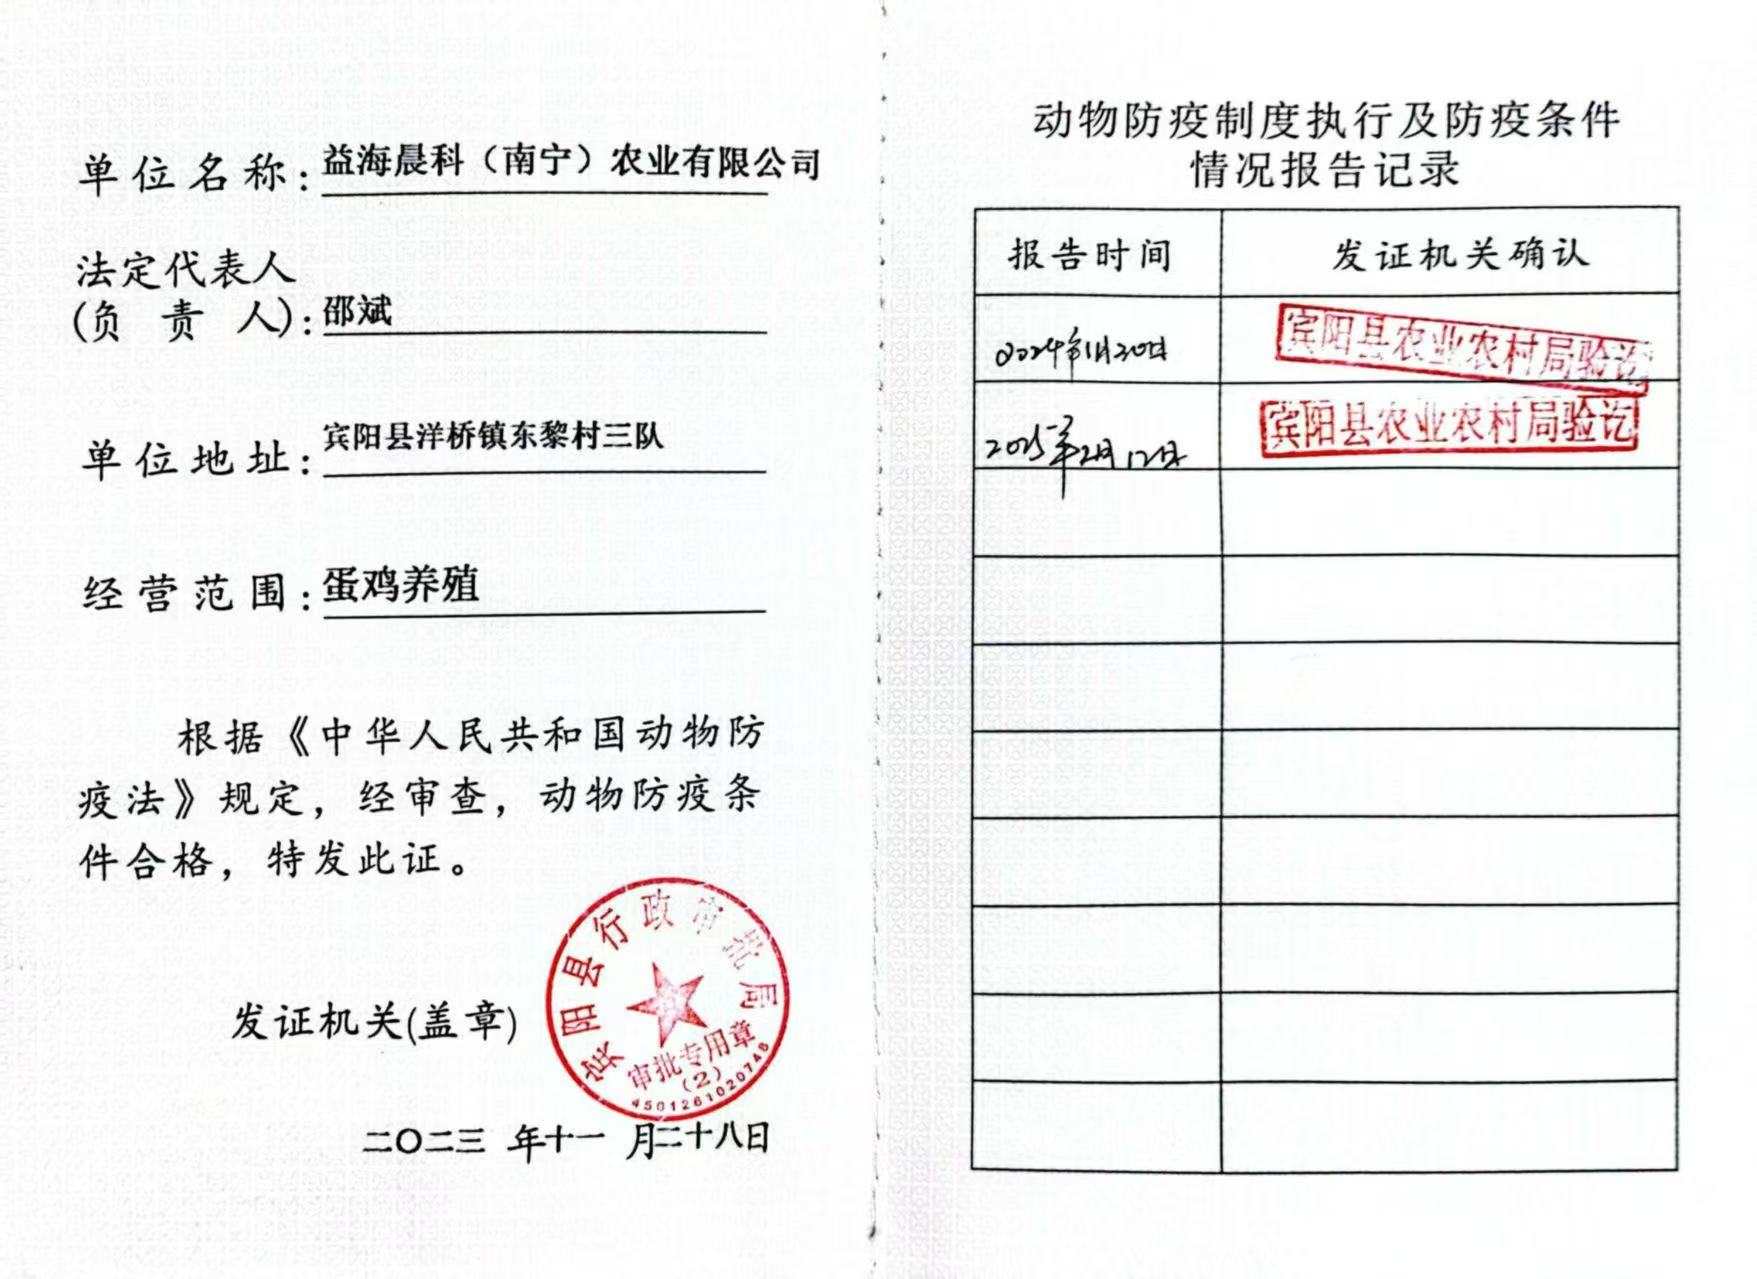 单位名称：益海晨科（南宁）农业有限公司
法定代表人
(负责人)：邵斌
单位地址：宾阳县洋桥镇东黎村三队
经营范围：蛋鸡养殖
根据《中华人民共和国动物防
疫法》规定，经审查，动物防疫条
件合格，特发此证。
发证机关(盖章)
宾阳县行政审批局
审批专用章
(2)
4501261020748
二〇二三 年十一 月二十八日
动物防疫制度执行及防疫条件
情况报告记录
报告时间 发证机关确认
2024年1月20日 宾阳县农业农村局验讫
2025年2月12日 宾阳县农业农村局验讫